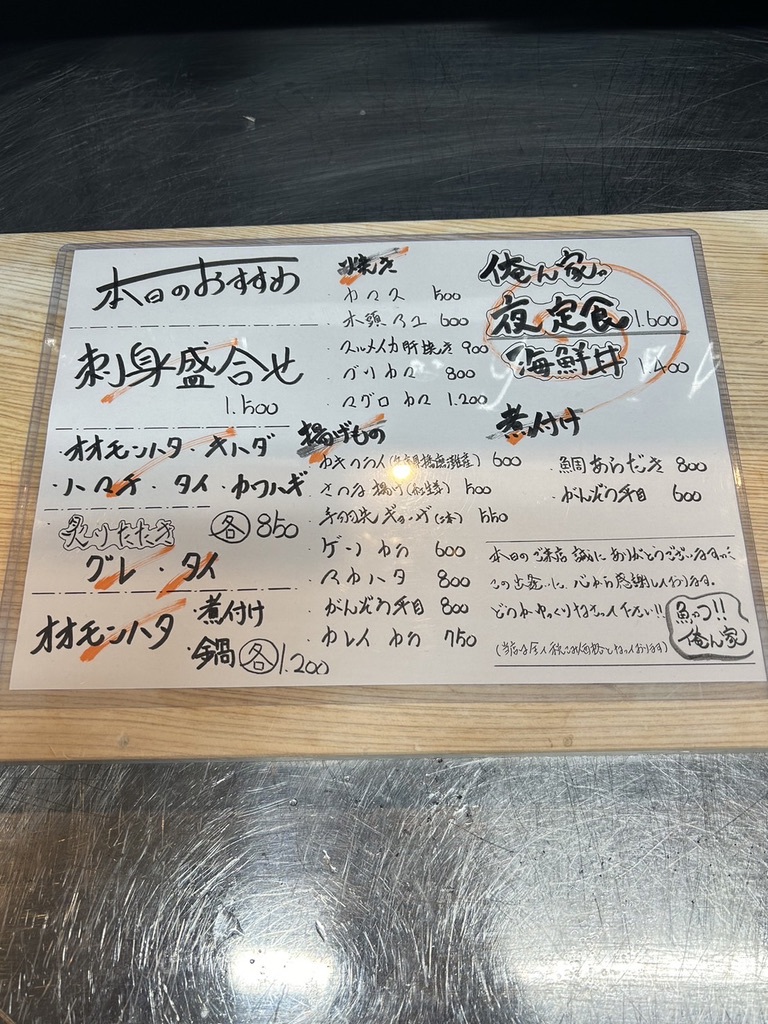 本日のおすすめ
刺身盛合せ
1.500
オオモンハタ・キハダ
ハマチ・タイ・カワハギ
炙りたたき 各 850
グレ・タイ
オオモンハタ
・煮付け
・鍋 各 1.200
焼き
・カマス 500
・木頭アユ 600
・スルメイカ肝焼き 900
・ブリカマ 800
・マグロカマ 1.200
揚げもの
・カキフライ(兵庫県播磨灘産) 600
・さつま揚げ 500
・手羽先ギョーザ(2本) 550
・ゲソカラ 600
・マカハタ 800
・がんぞう平目 800
・カレイカラ 750
俺ん家の
夜定食 1.600
海鮮丼 1.400
煮付け
・鯛あらだき 800
・がんぞう平目 600
本日のご来店誠にありがとうございます
この出会いに、心から感謝しております。
どうかゆっくりなさって下さい!!
(当店は全て税込価格となっております)
魚っつ!!
俺ん家